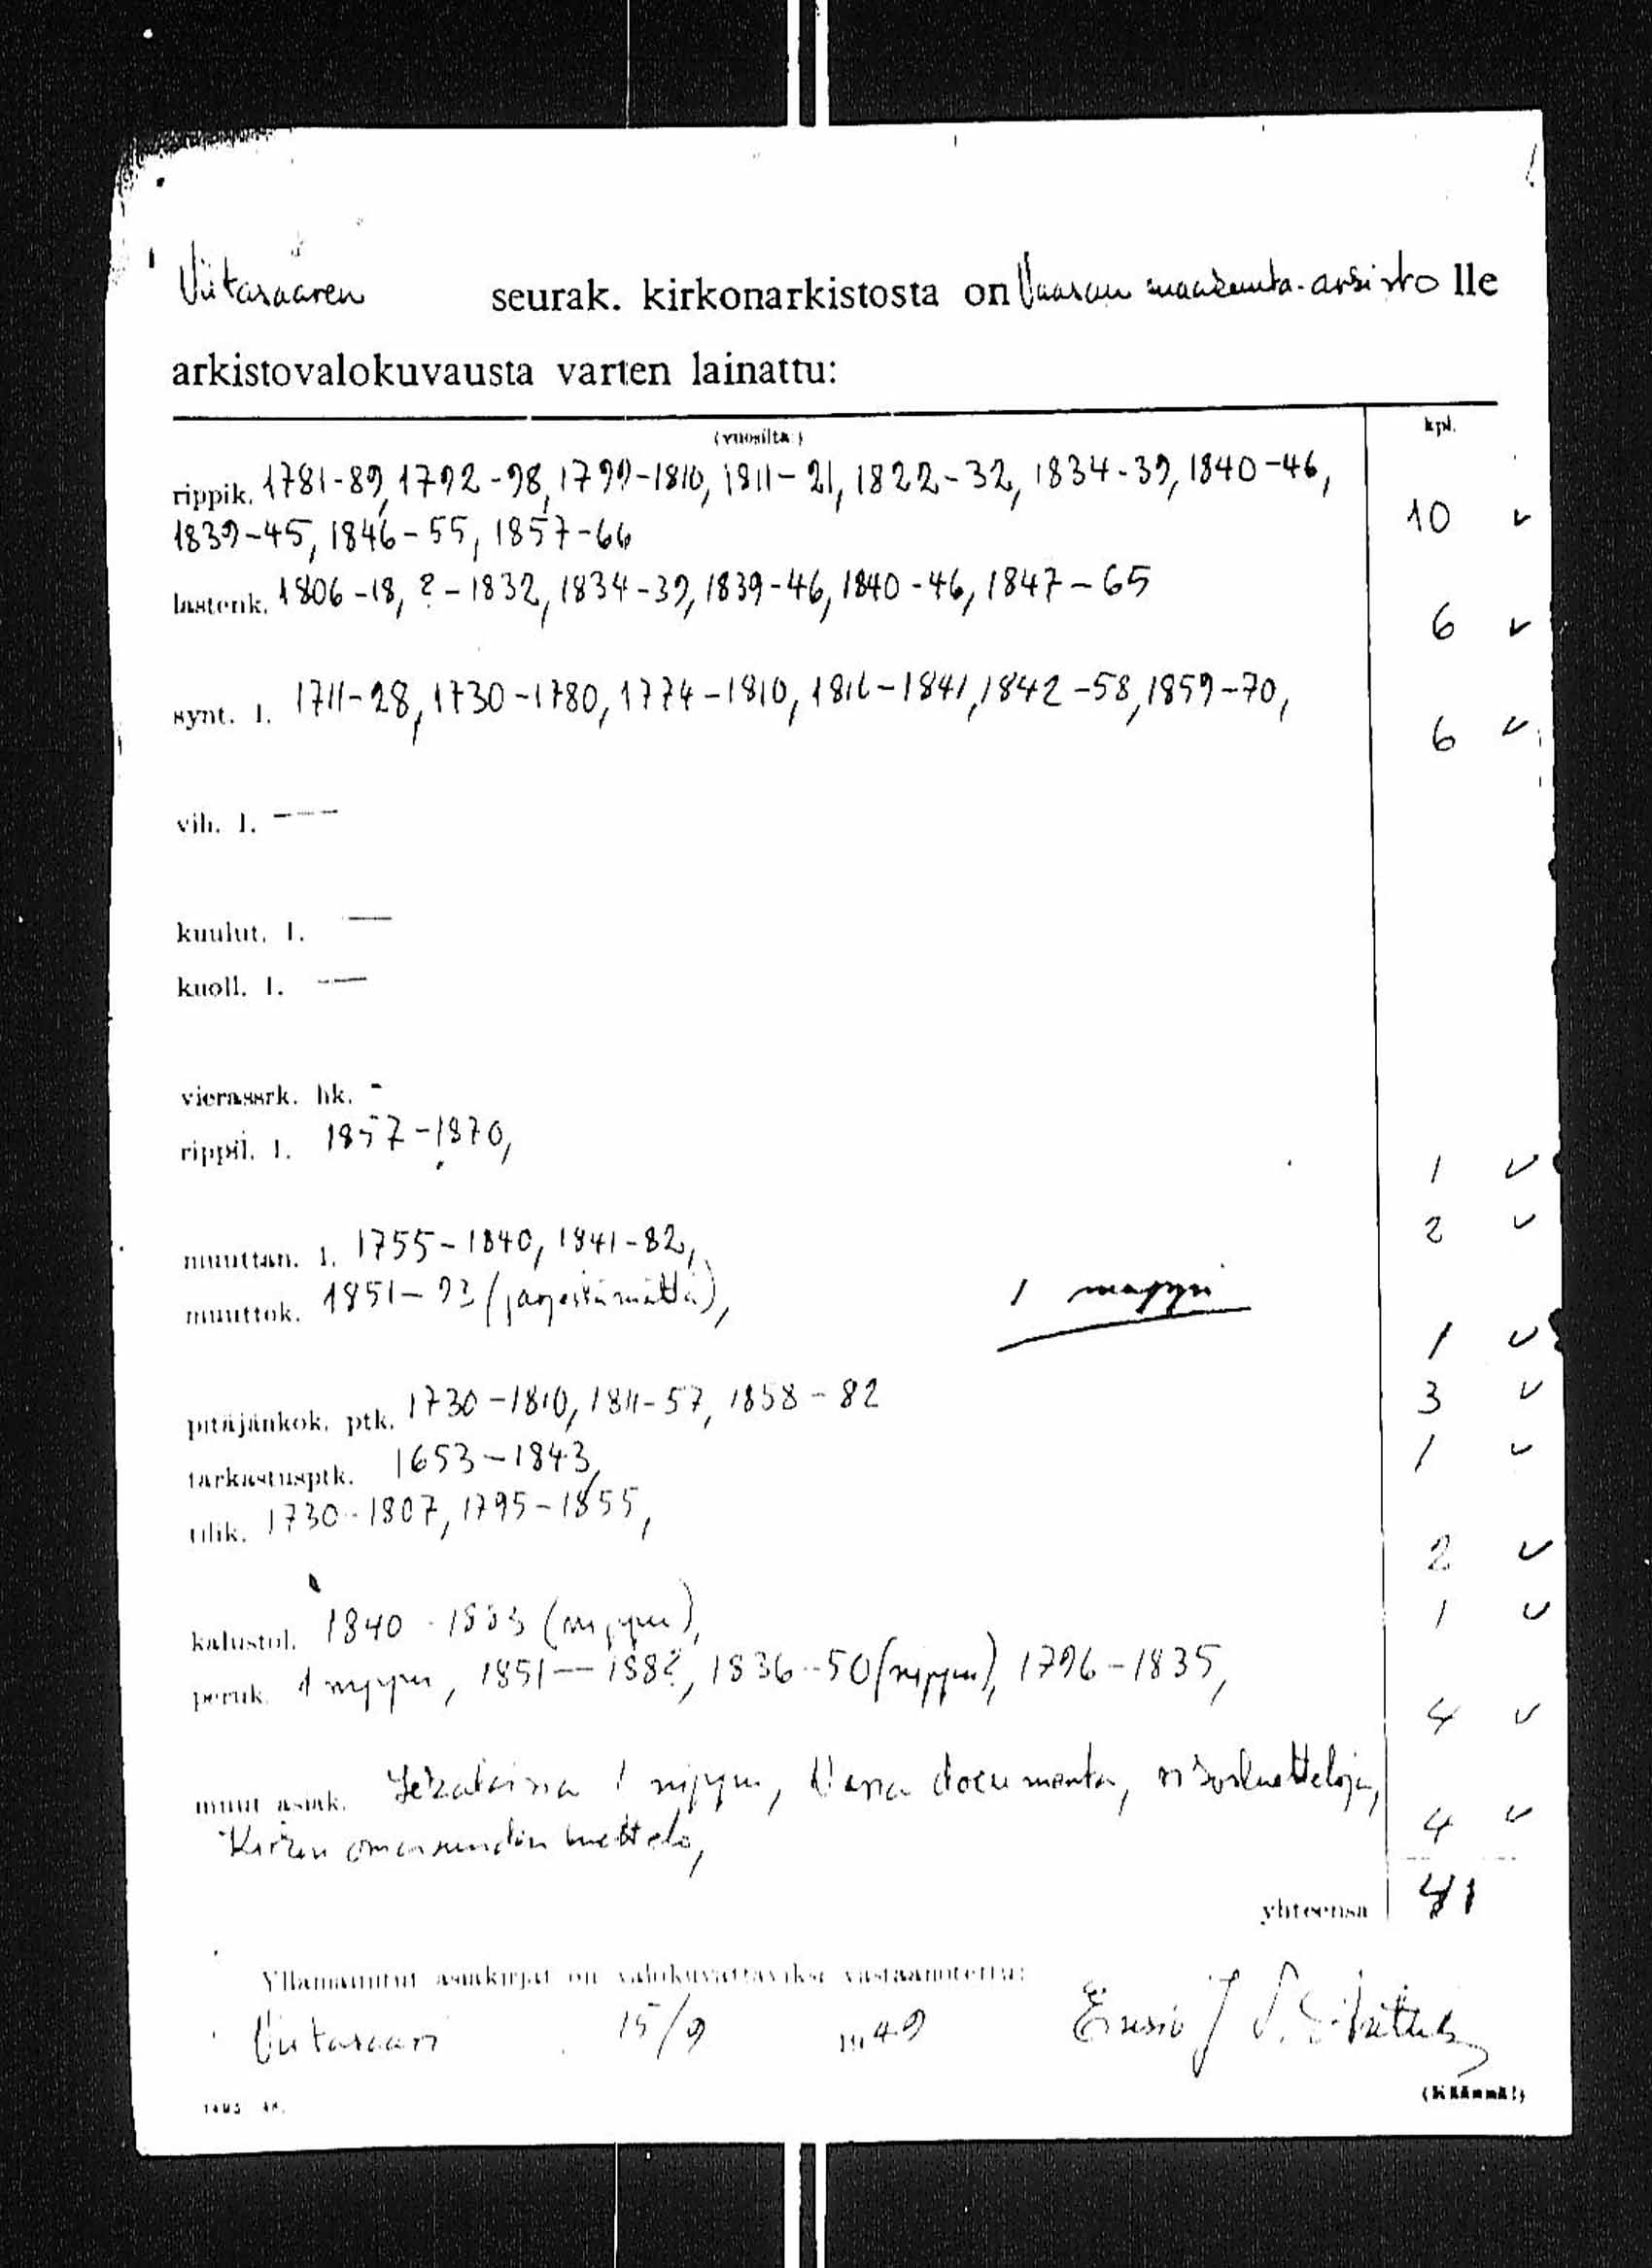 Viitasaaren seurak. kirkonarkistosta on Vaasan maakunta-arkisto lle
arkistovalokuvausta varten lainattu:
(vuosilta:) kpl.
rippik. 1781-89, 1792-98, 1799-1810, 1811-21, 1822-32, 1834-39, 1840-46,
1839-45, 1846-55, 1857-66 10 ✓
lastenk. 1806-18, ?-1832, 1834-39, 1839-46, 1840-46, 1847-65
6 ✓
synt. l. 1711-28, 1730-1780, 1774-1810, 1811-1841, 1842-58, 1859-70,
6 ✓
vih. l. ---
kuulut. l. —
kuoll. l. —
vierassrk. hk. -
rippil. l. 1857-1870,
1 ✓
muuttan. l. 1755-1840, 1841-82, 2 ✓
muuttok. 1851-93 (järjestämättä), 1 mappi
1 ✓
pitäjänkok. ptk. 1730-1810, 1811-57, 1858-82 3 ✓
tarkastusptk. 1653-1843, 1 ✓
tilik. 1730-1807, 1795-1855,
2 ✓
kalustol. 1840-1883 (nippu), 1 ✓
peruk. 1 nippu, 1851—1882, 1836-50 (nippu), 1796-1835,
4 ✓
muut asiak. Sekalaisia 1 nippu, documenta,
Kirkon omaisuuden luettelo, 4 ✓
yhteensä 41
Yllämainitut asiakirjat on valokuvattaviksi vastaanotettu:
Viitasaari 15/9 1949 Ensio J
(Käännä!)